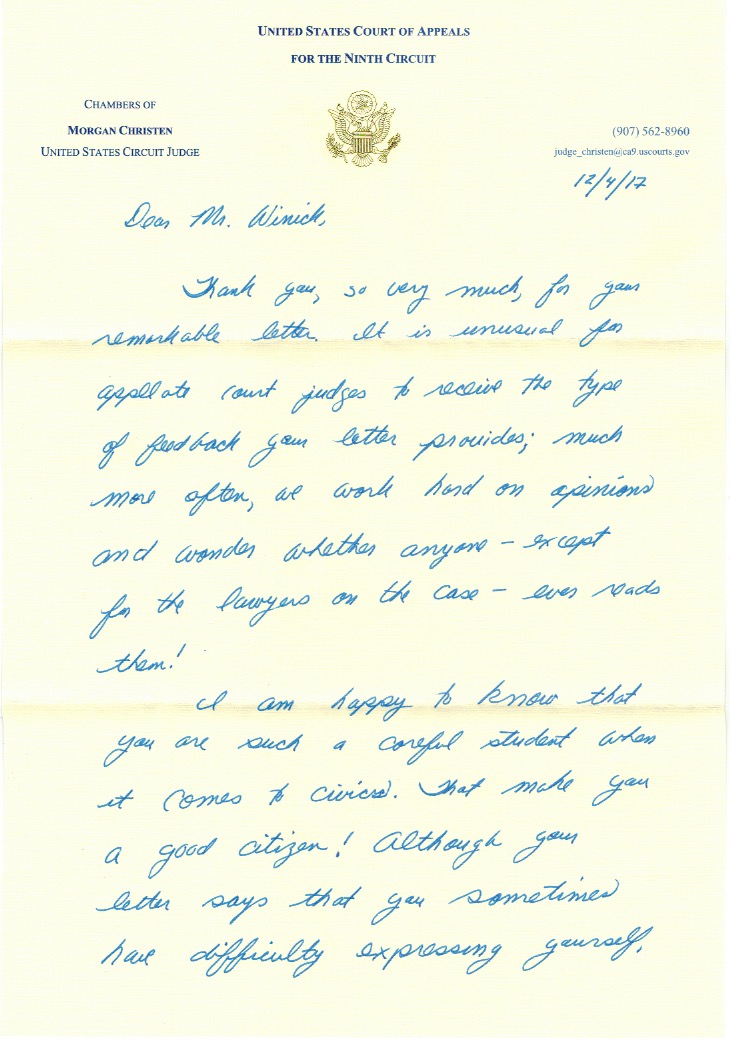 UNITED STATES COURT OF APPEALS
FOR THE NINTH CIRCUIT
CHAMBERS OF
MORGAN CHRISTEN
UNITED STATES CIRCUIT JUDGE
(907) 562-8960
judge_christen@ca9.uscourts.gov
12/4/17
Dear Mr. Winick,
Thank you, so very much, for your
remarkable letter. It is unusual for
appellate court judges to receive the type
of feedback your letter provides; much
more often, we work hard on opinions
and wonder whether anyone – except
for the lawyers on the case – ever reads
them!
I am happy to know that
you are such a careful student when
it comes to civics. That make you
a good citizen! Although your
letter says that you sometimes
have difficulty expressing yourself,